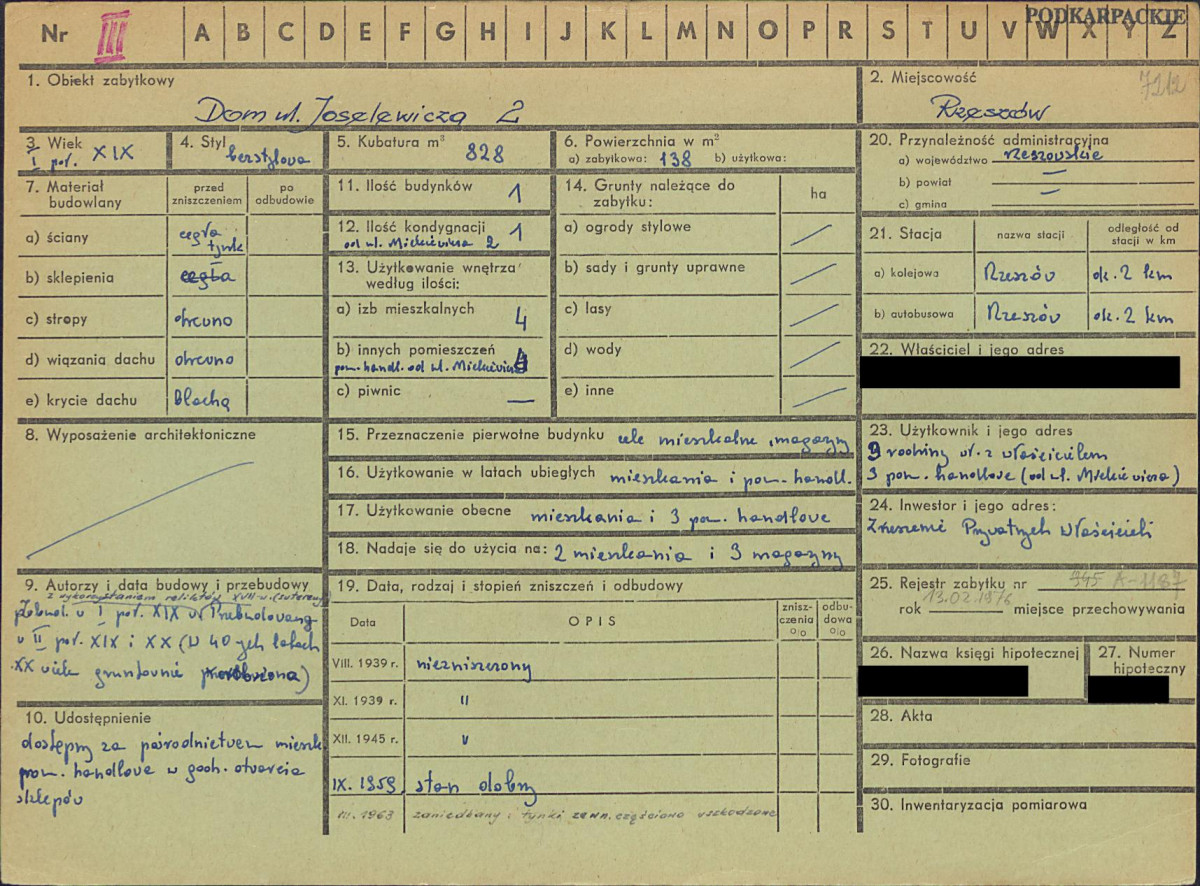 PODKARPACKIE
Nr III A B C D E F G H I J K L M N O P R S T U V W X Y Z
1. Obiekt zabytkowy
Dom ul. Joselewicza 2
2. Miejscowość
7212
Rzeszów
3. Wiek
I poł. XIX
4. Styl
bezstylowa
5. Kubatura m³
828
6. Powierzchnia w m²
a) zabytkowa: 138 b) użytkowa:
20. Przynależność administracyjna
a) województwo rzeszowskie
b) powiat —
c) gmina —
7. Materiał budowlany
przed zniszczeniem
po odbudowie
a) ściany
cegła
tynk
b) sklepienia
cegła
c) stropy
drewno
d) wiązania dachu
drewno
e) krycie dachu
blacha
11. Ilość budynków
1
12. Ilość kondygnacji 1
od ul. Mickiewicza 2
13. Użytkowanie wnętrza
według ilości:
a) izb mieszkalnych
4
b) innych pomieszczeń
pom. handl. od ul. Mickiewicza
c) piwnic —
14. Grunty należące do
zabytku:
ha
a) ogrody stylowe
b) sady i grunty uprawne
c) lasy
d) wody
e) inne
21. Stacja
nazwa stacji
odległość od
stacji w km
a) kolejowa
Rzeszów
ok. 2 km
b) autobusowa
Rzeszów
ok. 2 km
22. Właściciel i jego adres
8. Wyposażenie architektoniczne
15. Przeznaczenie pierwotne budynku cele mieszkalne, magazyny
16. Użytkowanie w latach ubiegłych mieszkania i pom. handl.
17. Użytkowanie obecne mieszkania i 3 pom. handlowe
18. Nadaje się do użycia na: 2 mieszkania i 3 magazyny
23. Użytkownik i jego adres
9 rodziny wł. z właścicielem
3 pom. handlowe (od ul. Mickiewicza)
24. Inwestor i jego adres:
Zrzeszenie Prywatnych Właścicieli
25. Rejestr zabytku nr 345 A-1187
13.02.1976
rok miejsce przechowywania
26. Nazwa księgi hipotecznej
27. Numer
hipoteczny
28. Akta
29. Fotografie
30. Inwentaryzacja pomiarowa
9. Autorzy i data budowy i przebudowy
z wykorzystaniem reliktów XVII w. (sutereny)
Zbud. w I poł. XIX w Przebudowany
w II poł. XIX i XX (W 40-tych latach
XX wieku gruntownie przerobiona)
10. Udostępnienie
dostępny za pośrednictwem mieszk.
pom. handlowe w godz. otwarcia
sklepów
19. Data, rodzaj i stopień zniszczeń i odbudowy
Data
OPIS
znisz-
czenia
%
odbu-
dowa
%
VIII. 1939 r. niezniszczony
XI. 1939 r. "
XII. 1945 r. "
IX. 1959 stan dobry
III. 1963 zaniedbany, tynki zewn. częściowo uszkodzone